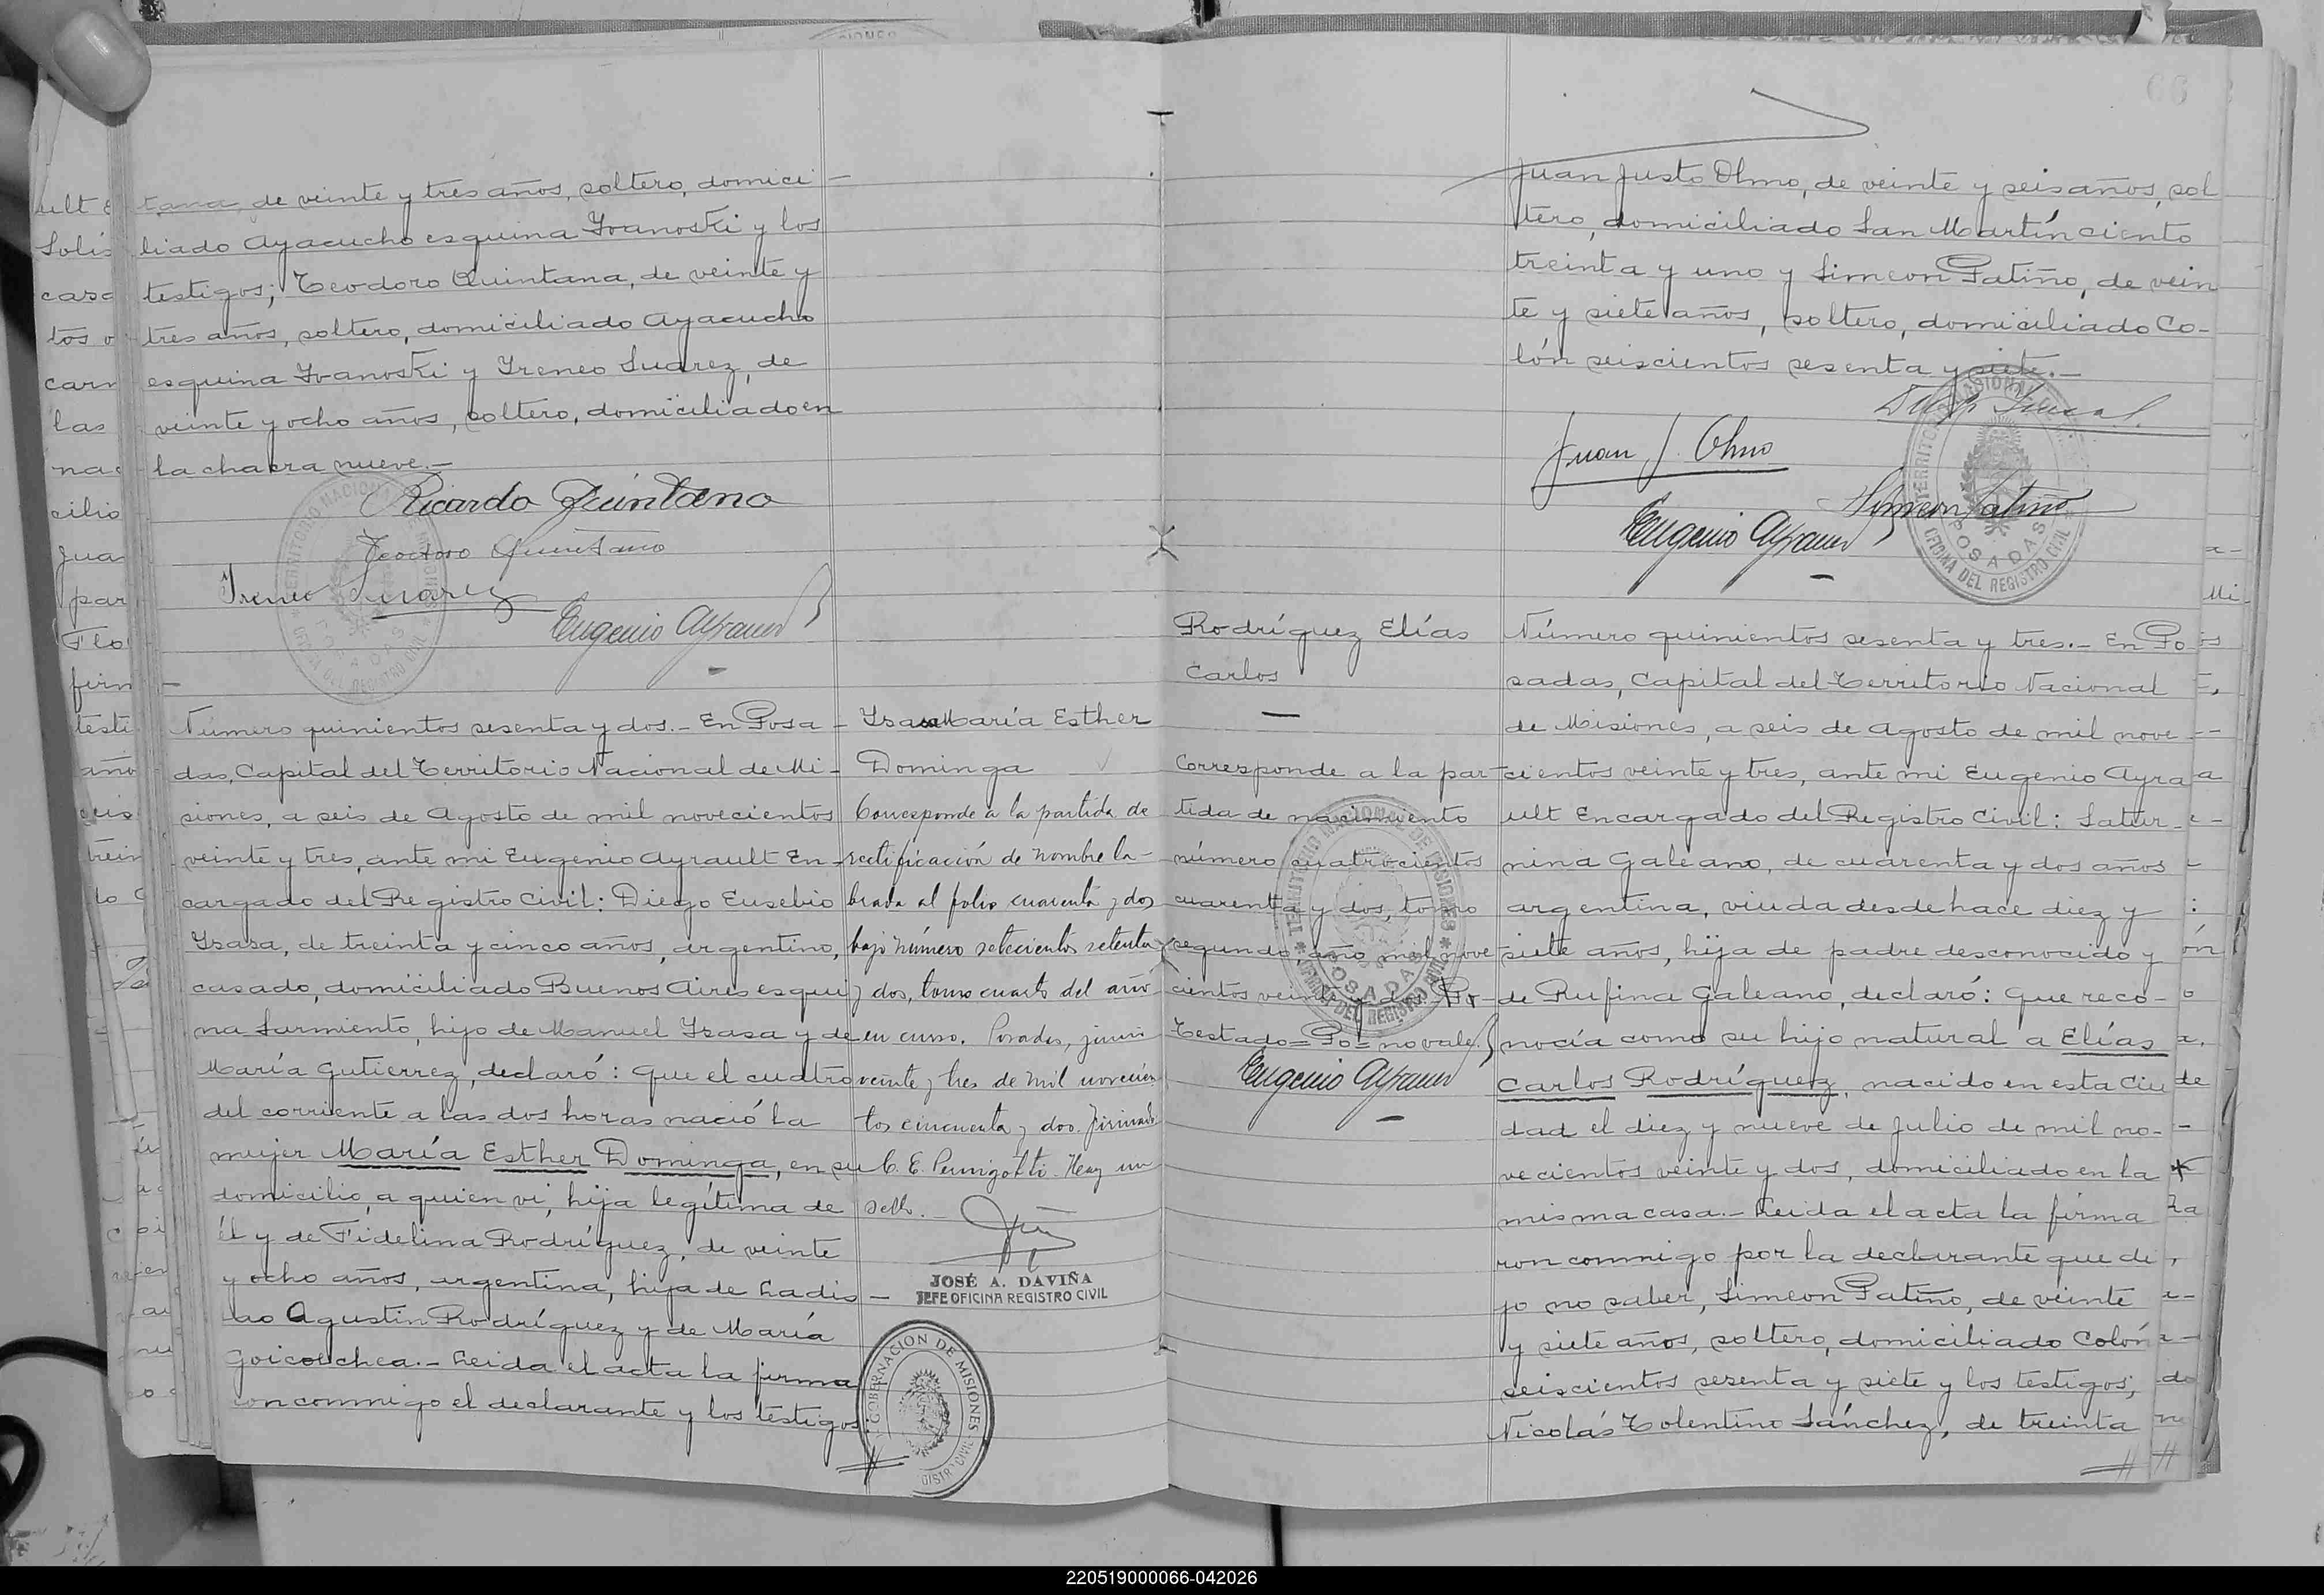 tana, de veinte y tres años, soltero, domici-
liado Ayacucho esquina Ivanoski y los
testigos; Teodoro Quintana, de veinte y
tres años, soltero, domiciliado Ayacucho
esquina Ivanoski y Ireneo Suarez, de
veinte y ocho años, soltero, domiciliado en
la chacra nueve.-
Ricardo Quintana
Teodoro Quintana
Ireneo Suarez
Eugenio Ayrault
Número quinientos sesenta y dos.- En Posa-
das, Capital del Territorio Nacional de Mi-
siones, a seis de Agosto de mil novecientos
veinte y tres, ante mi Eugenio Ayrault En-
cargado del Registro Civil: Diego Eusebio
Ysasa, de treinta y cinco años, argentino,
casado, domiciliado Buenos Aires esqui
na Sarmiento, hijo de Manuel Ysasa y de
María Gutierrez, declaró: Que el cuatro
del corriente a las dos horas nació la
mujer María Esther Dominga, en su
domicilio, a quien vi, hija legítima de
él y de Fidelina Rodríguez, de veinte
y ocho años, argentina, hija de Ladis-
lao Agustin Rodríguez y de María
Goicoechea.- Leida el acta la firma
ron conmigo el declarante y los testigos:
Ysasa María Esther
Dominga
Corresponde a la partida de
rectificación de nombre la-
brada al folio cuarenta y dos
bajo número setecientos setenta
y dos, tomo cuarto del año
en curso. Posadas, junio
veinte y tres de mil novecien
tos cincuenta y dos. Firmado
C. E. Pernigotti. Hay un
sello.-
JOSÉ A. DAVIÑA
JEFE OFICINA REGISTRO CIVIL
GOBERNACION DE MISIONES
66
Juan Justo Olmo, de veinte y seis años, sol
tero, domiciliado San Martín ciento
treinta y uno y Simeon Patiño, de vein
te y siete años, soltero, domiciliado Co-
lón seiscientos sesenta y siete.-
Juan J. Olmo
Simeon Patiño
Eugenio Ayrault
TERRITORIO NACIONAL DE MISIONES
POSADAS
OFICINA DEL REGISTRO CIVIL
Rodríguez Elías
Carlos
Corresponde a la par-
tida de nacimiento
número cuatrocientos
cuarenta y dos, tomo
segundo, año mil nove
cientos veinte y dos. Po-
Testado= Po= no vale.
Eugenio Ayrault
Número quinientos sesenta y tres.- En Po
sadas, Capital del Territorio Nacional
de Misiones, a seis de Agosto de mil nove
cientos veinte y tres, ante mi Eugenio Ayra
ult Encargado del Registro Civil: Satur-
nina Galeano, de cuarenta y dos años
argentina, viuda desde hace diez y
siete años, hija de padre desconocido y
de Rufina Galeano, declaró: Que reco-
nocía como su hijo natural a Elías
Carlos Rodríguez, nacido en esta Ciu
dad el diez y nueve de Julio de mil no-
vecientos veinte y dos, domiciliado en la
misma casa.- Leida el acta la firma
ron conmigo por la declarante que di
jo no saber, Simeon Patiño, de veinte
y siete años, soltero, domiciliado Colón
seiscientos sesenta y siete y los testigos;
Nicolás Tolentino Sánchez, de treinta
220519000066-042026